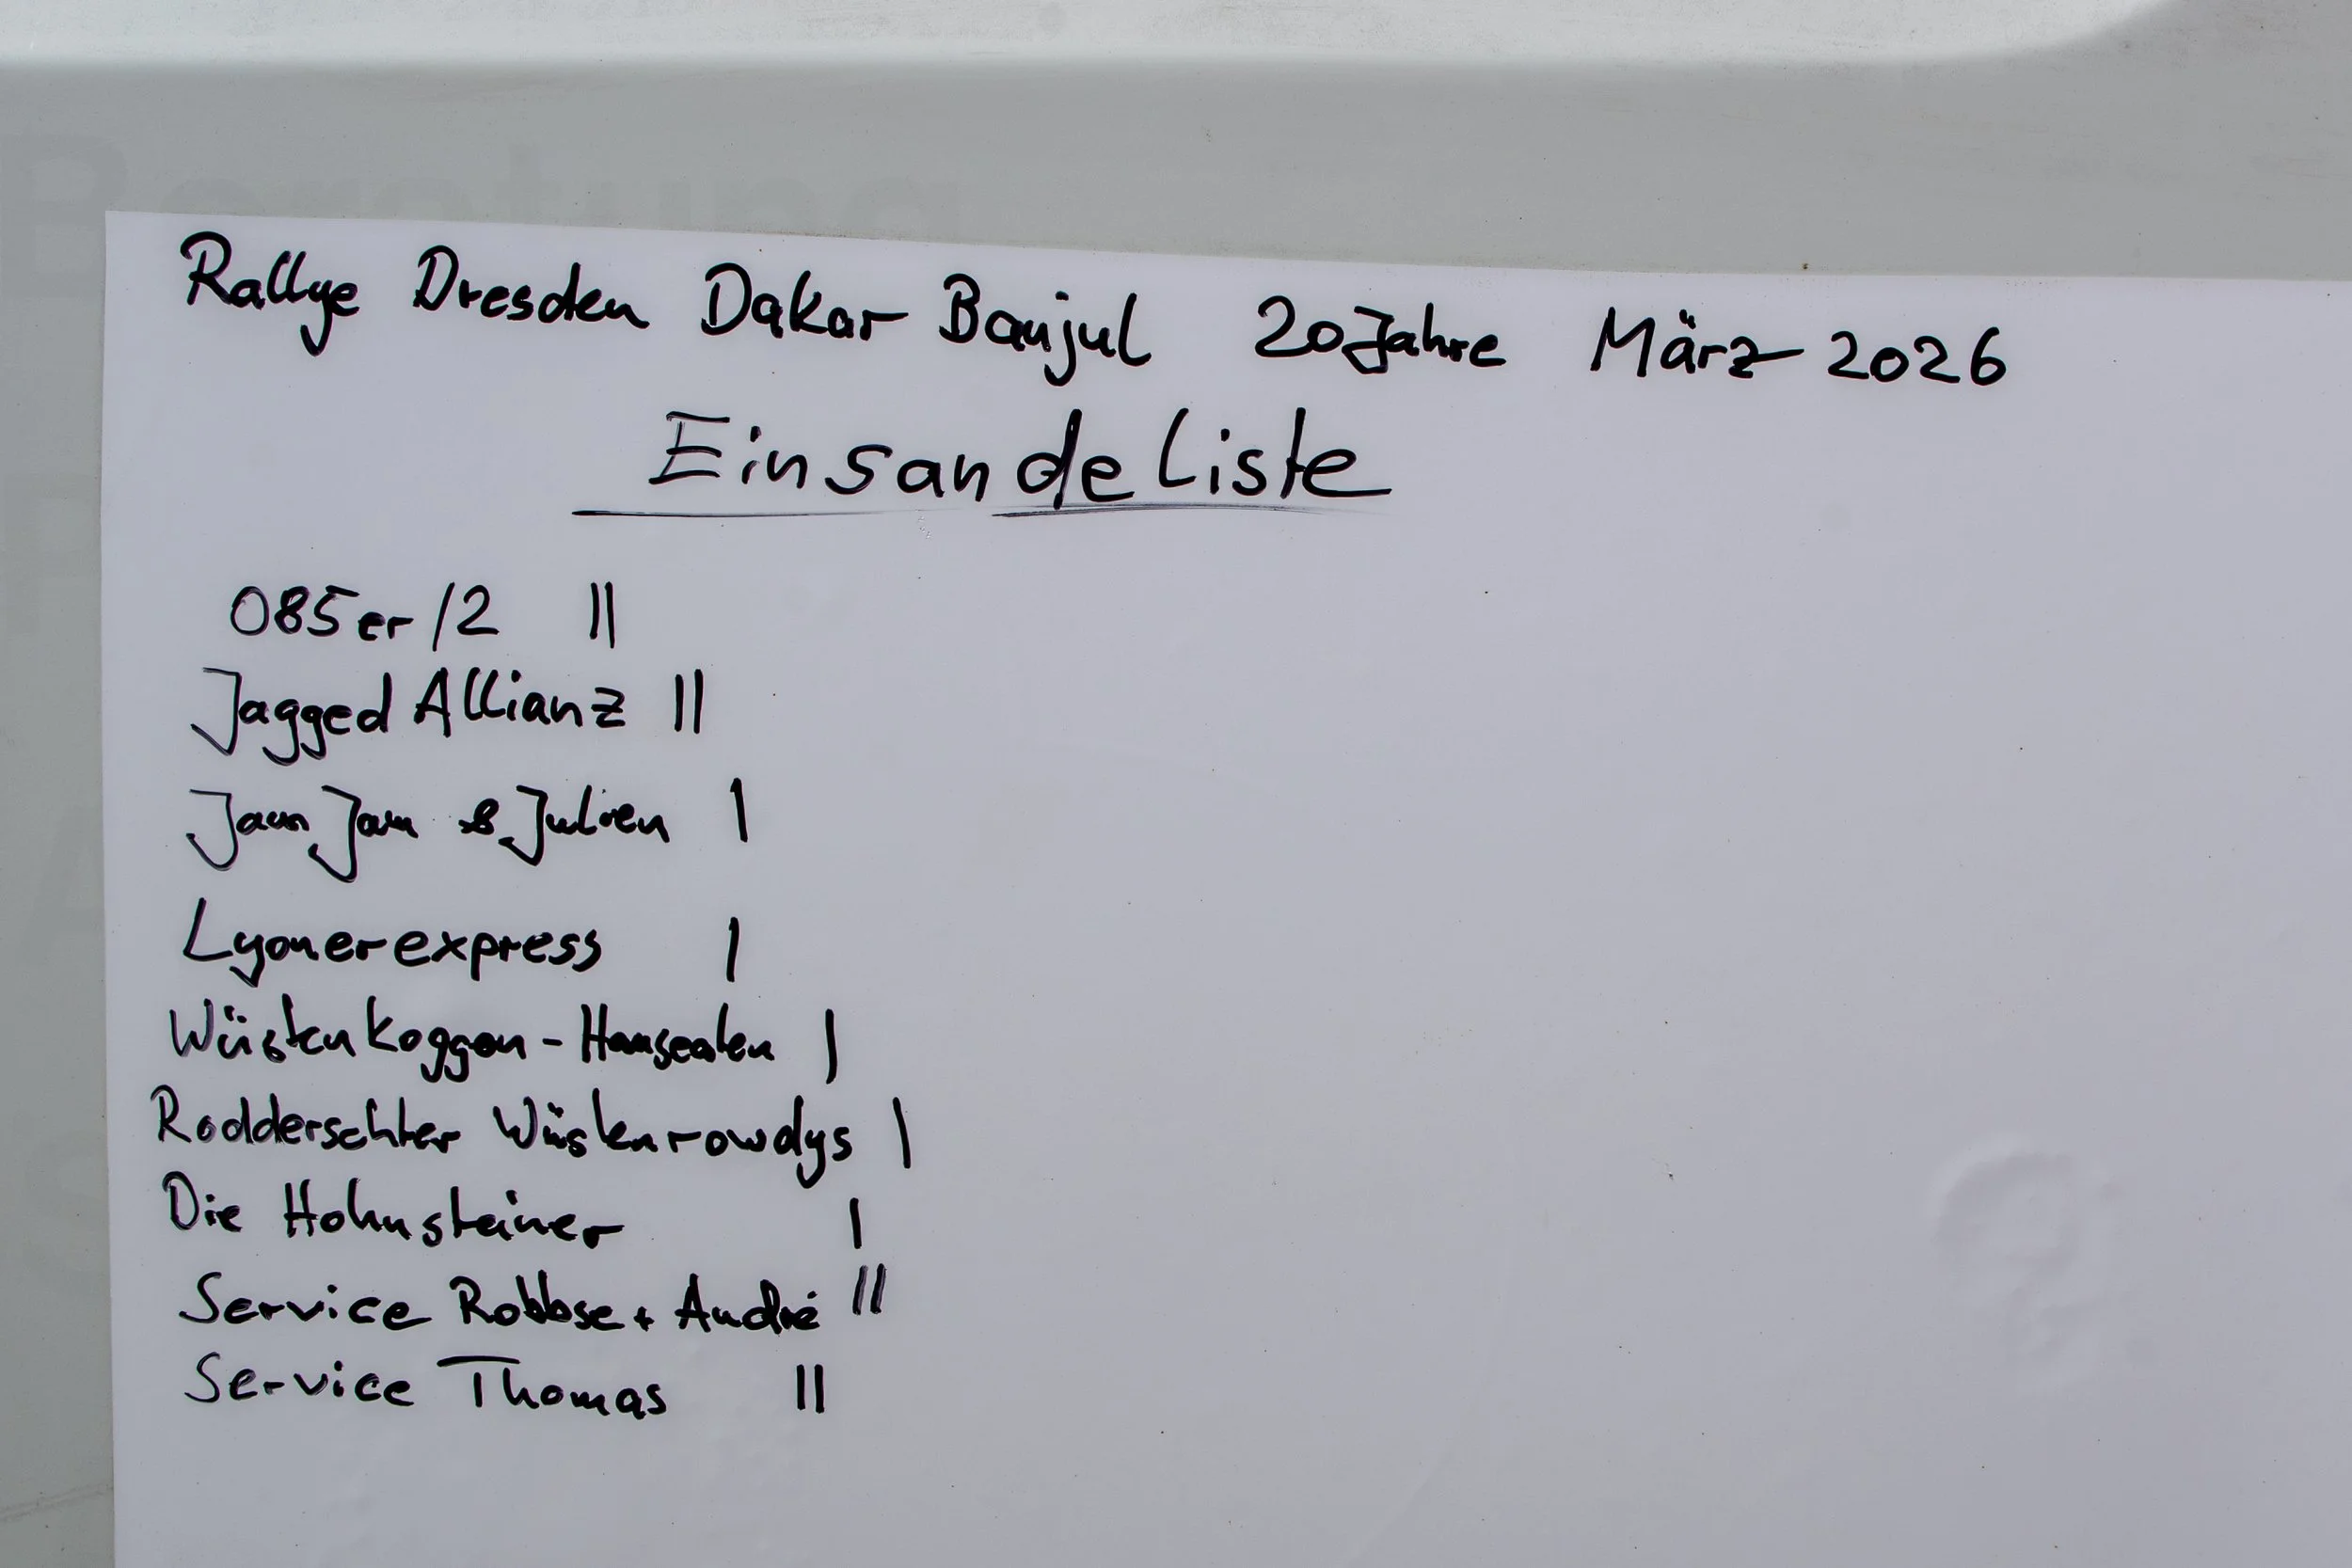 Beratung
Rallye Dresden Dakar Banjul 20 Jahre März 2026
Einsandeliste
085er/2 ||
Jagged Allianz ||
Jaun Jam & Julien |
Lyonerexpress |
Wüstenkoggen - Hanseaten |
Rodderschter Wüstenrowdys |
Die Hohnsteiner |
Service Robbse + André ||
Service Thomas ||